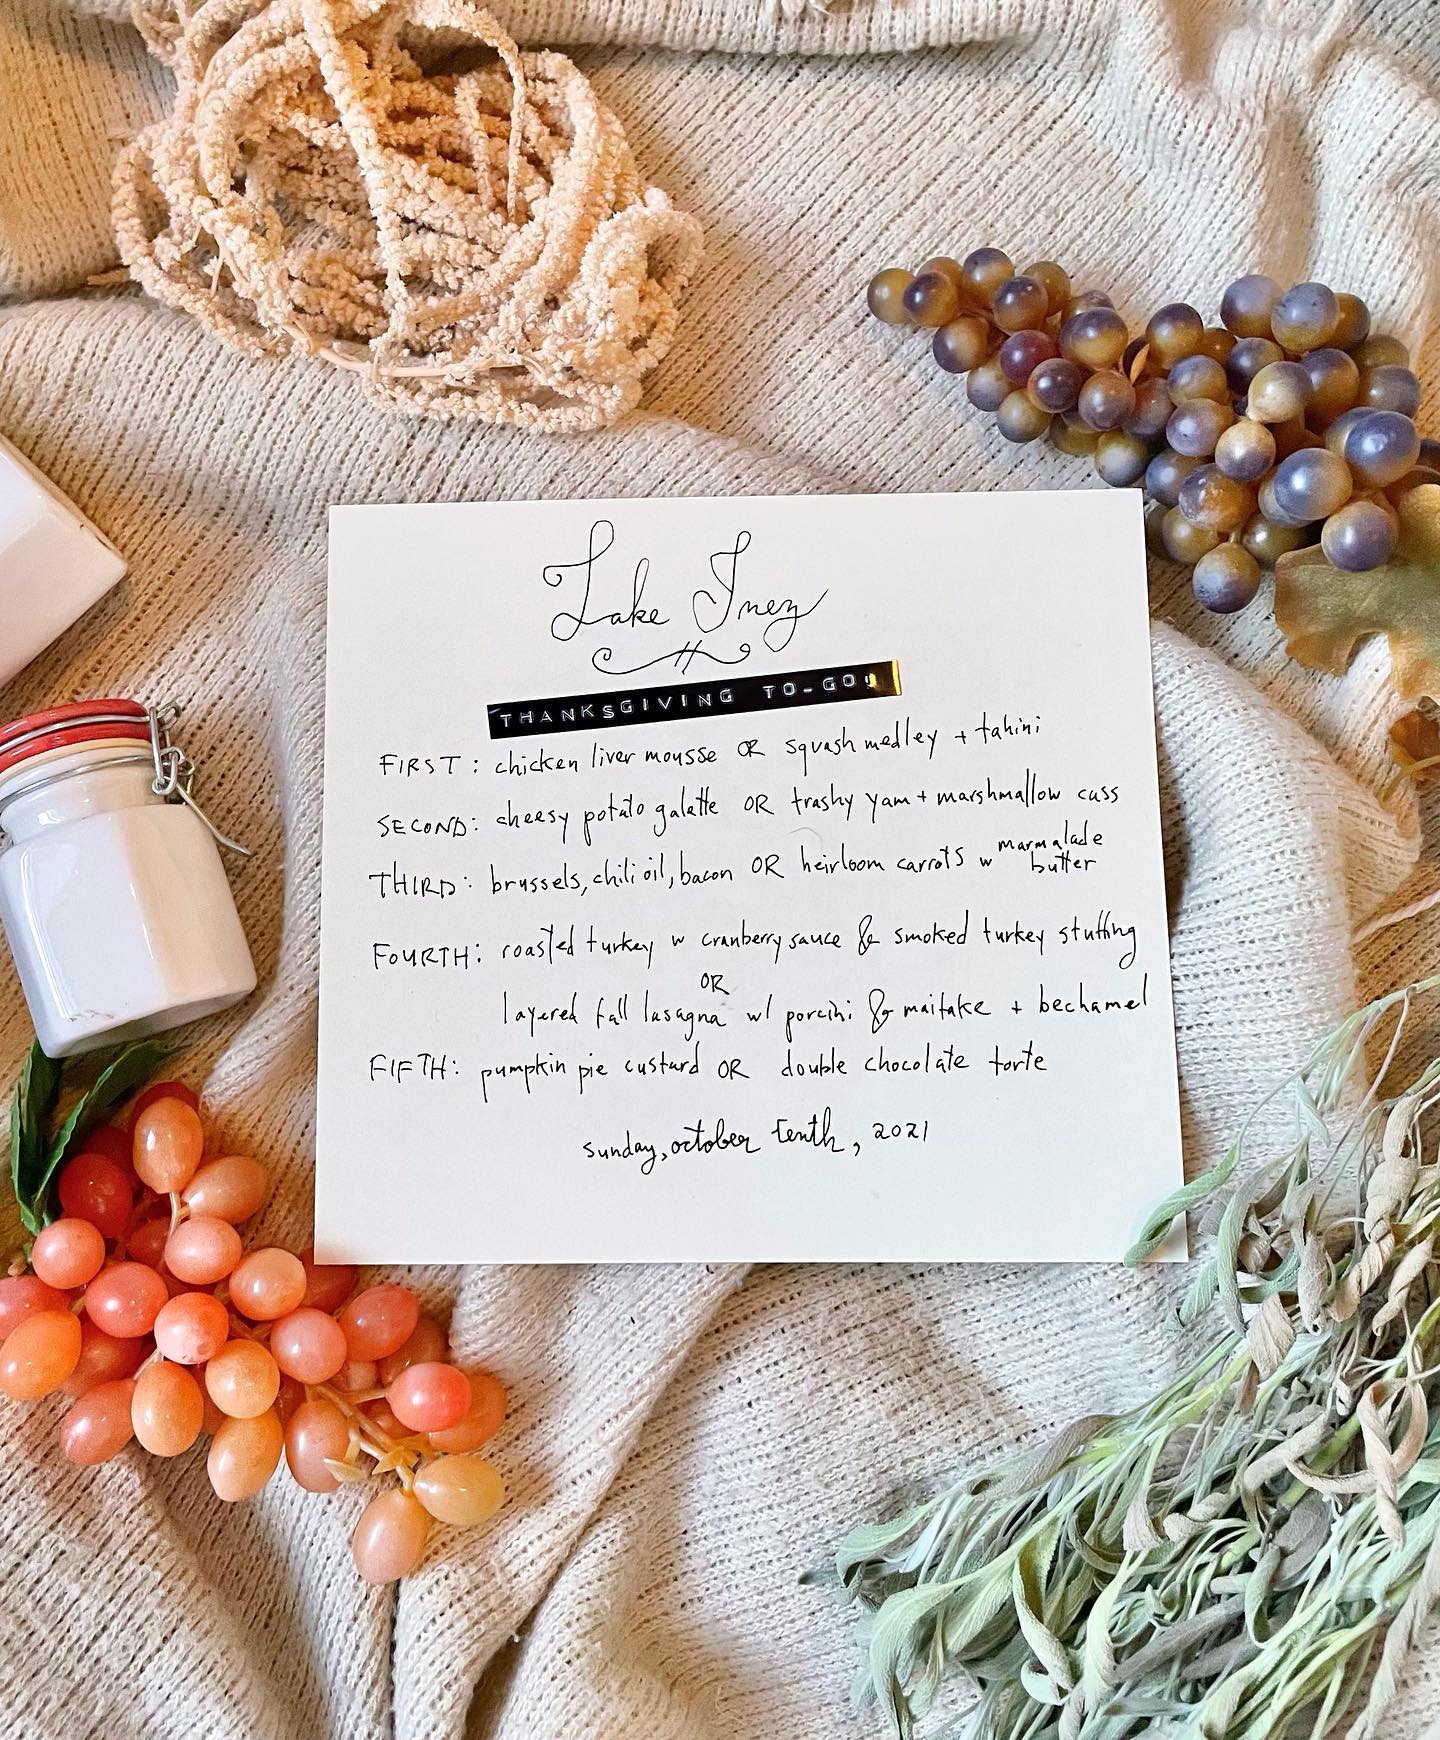 Lake Inez
THANKSGIVING TO-GO!
FIRST: chicken liver mousse OR squash medley + tahini
SECOND: cheesy potato galatte OR trashy yam + marshmallow cass
THIRD: brussels, chili oil, bacon OR heirloom carrots w marmalade butter
FOURTH: roasted turkey w cranberry sauce & smoked turkey stuffing
OR
layered fall lasagna w/ porcini & maitake + bechamel
FIFTH: pumpkin pie custard OR double chocolate torte
sunday, october tenth, 2021